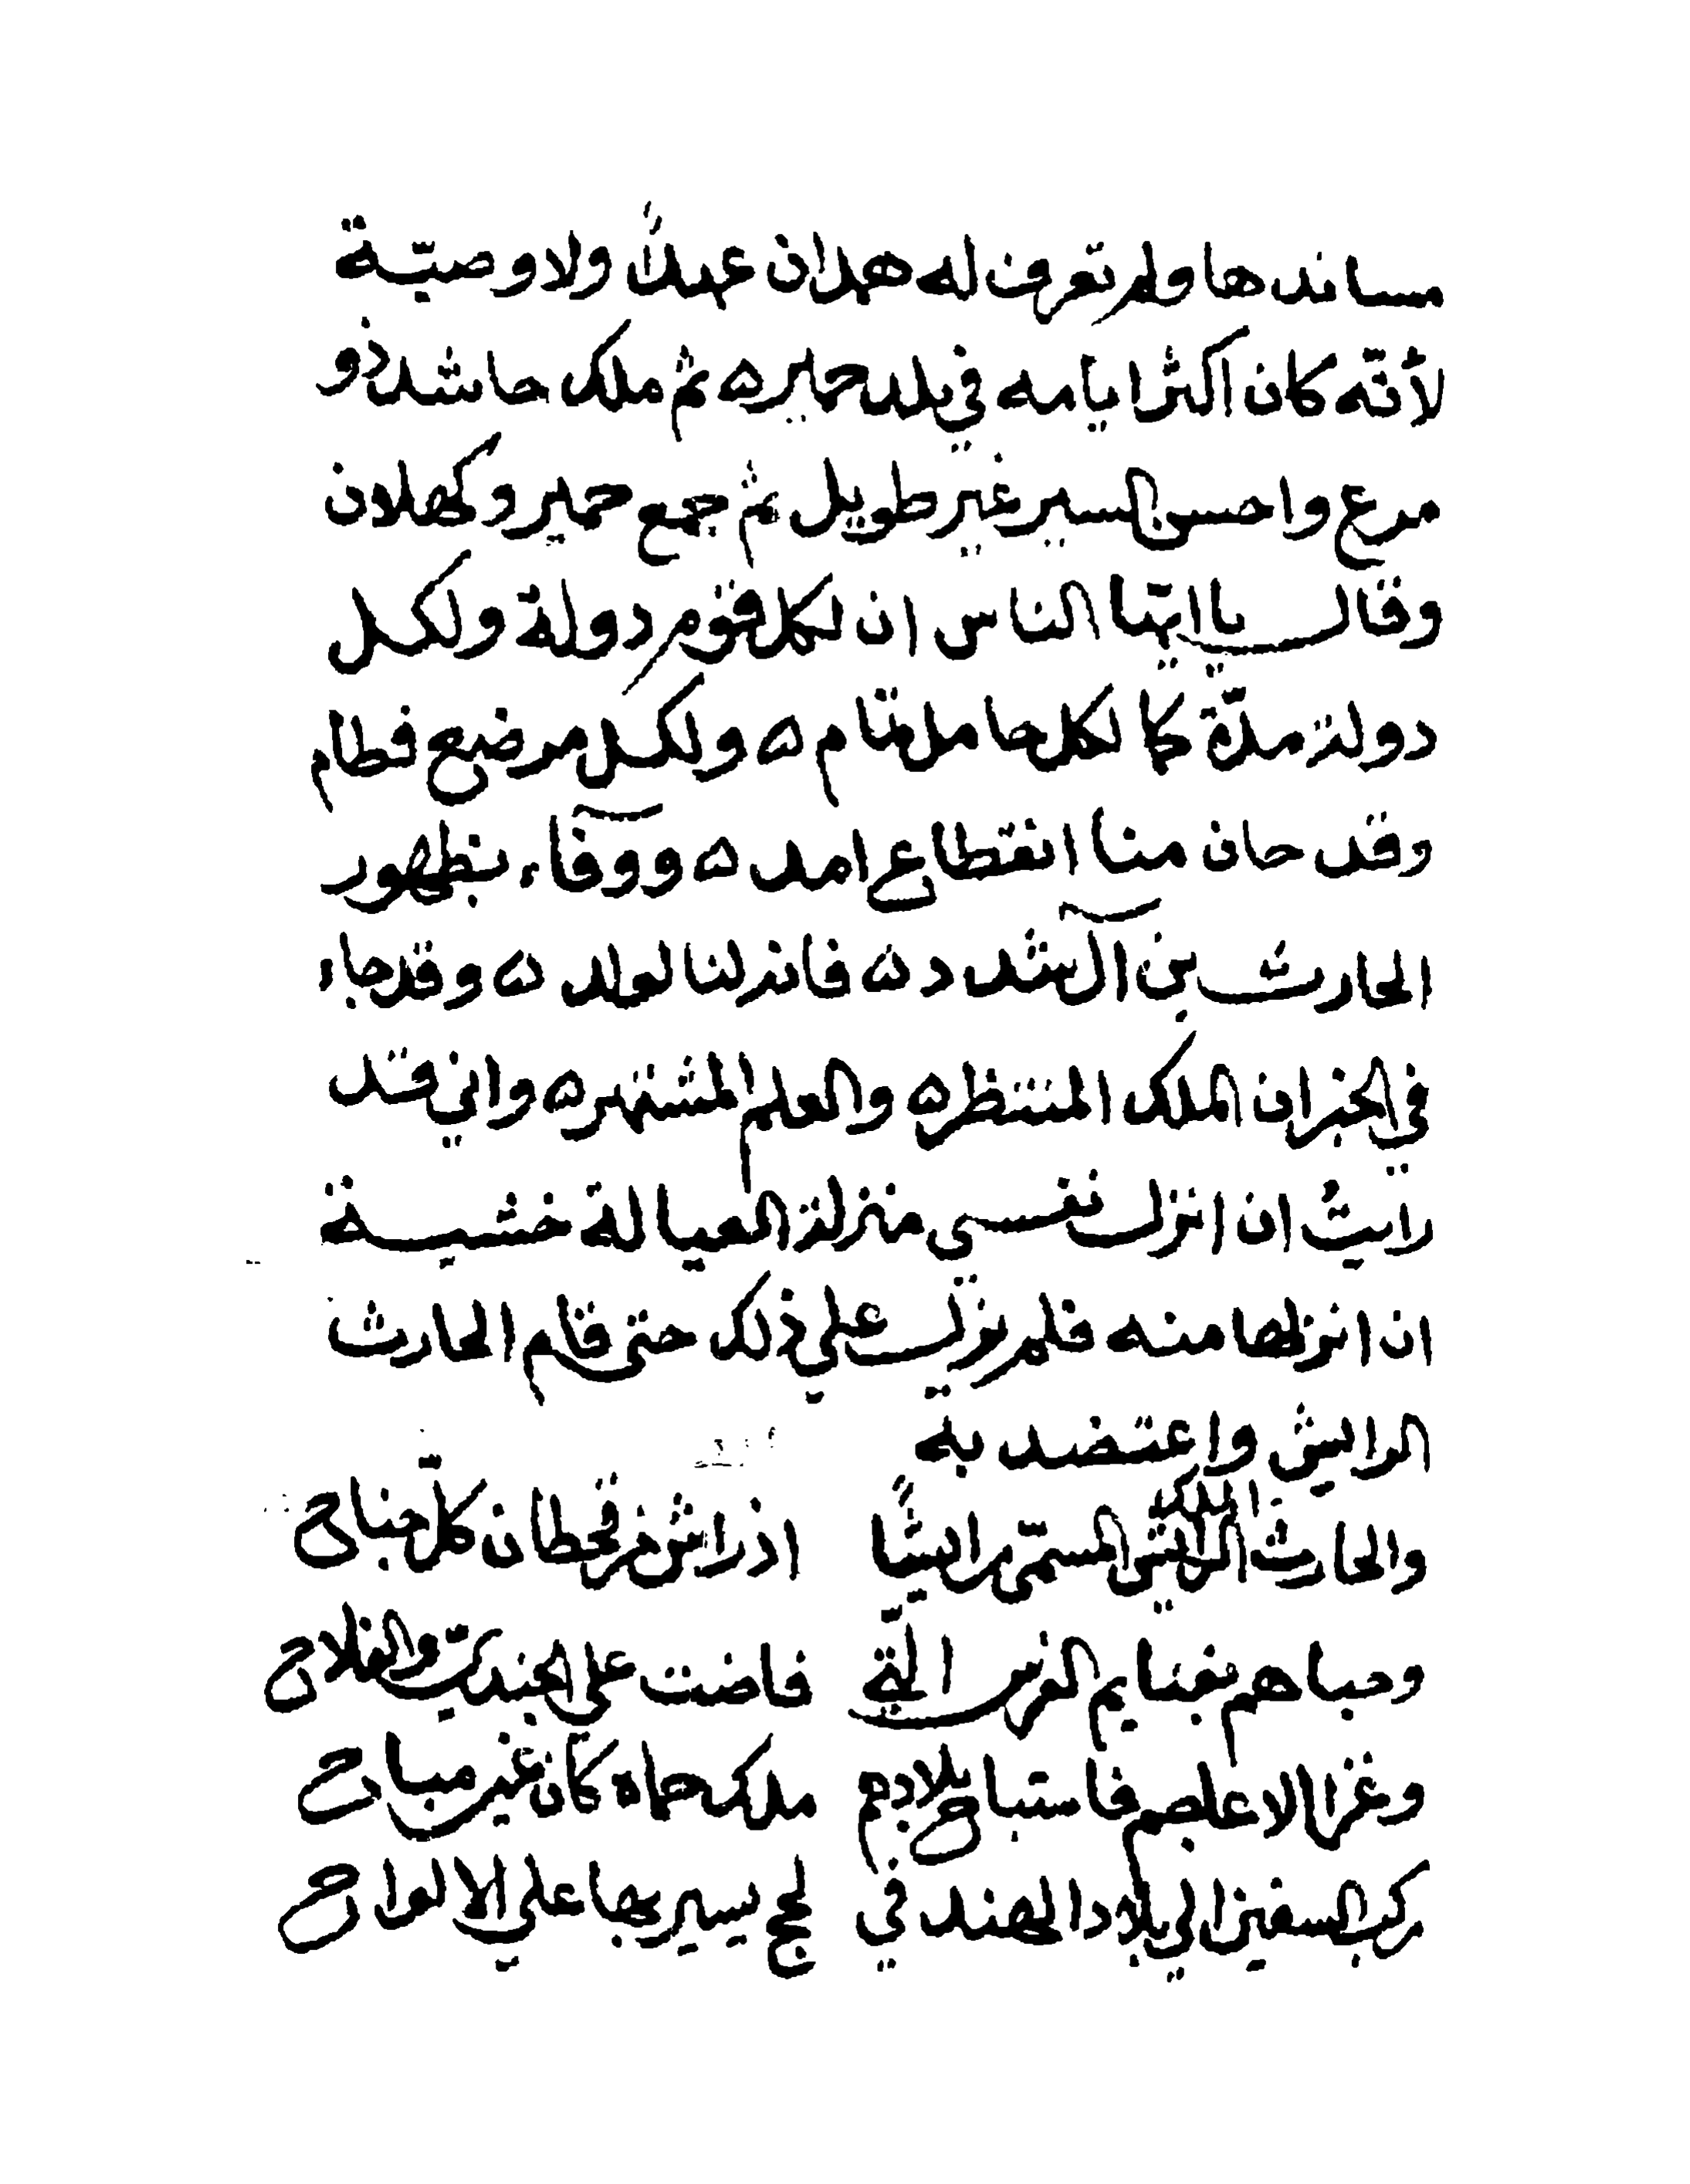 مساندها ولم تعرف له همدان عهدًا ولا وصيّة
لأنّه كان اكثر ايامه في بلد حمير ٥ ثم ملك حاشد ذو
مرع واحسن السير غير طويل ثم جمع حمير وكهلان
وقال يا ايّها الناس ان لكل قوم دولة ولكل
دولة مدّة كما لكل حامل تمام ٥ ولكل مرضع فطام
وقد حان منا انقطاع امد ٥ ووفآء بظهور
الحارث بن آل شدد ٥ فانزلنا لولد ٥ وقد جاء
في الخبر ان الملك المنتظر ٥ والعلم المشتهر ٥ واني قد
رايتُ ان انزل نفسي منزلة العيالة خشية
ان انزلها منه فلم يزل علي ذلك حتى قام الحارث
الرايش واعتضد به
والحارث الملك المسمّى رايشًا اذ راش من قحطان كلّ جناح
وحباهم بغنايم الفرس الّتي فاضت على الجند والفلاح
وغزا الاعاجم فاستباح بلادهم ملك حماه كان غير مباح
ركب السفين الي بلاد الهند في لجج يسير بها علي الالواح